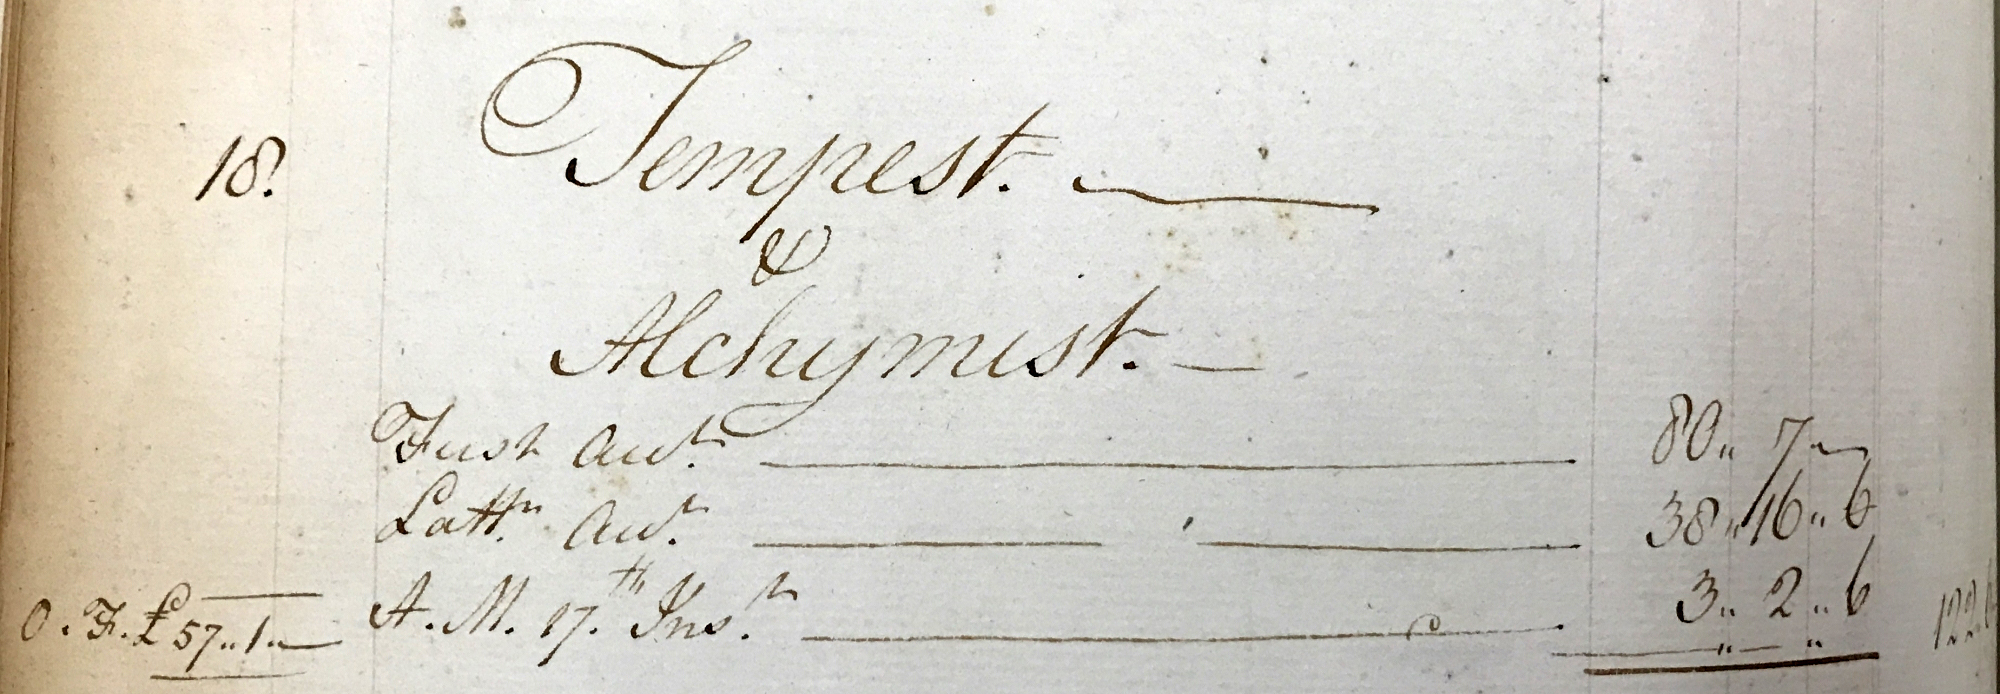 18. Tempest. —
&
Alchymist. —
First Act. 80 " 7 " —
Latt.r Act. 38 " 16 " 6
O. F. £57 " 1 " — A. M. 17.th Ins.t 3 " 2 " 6 122